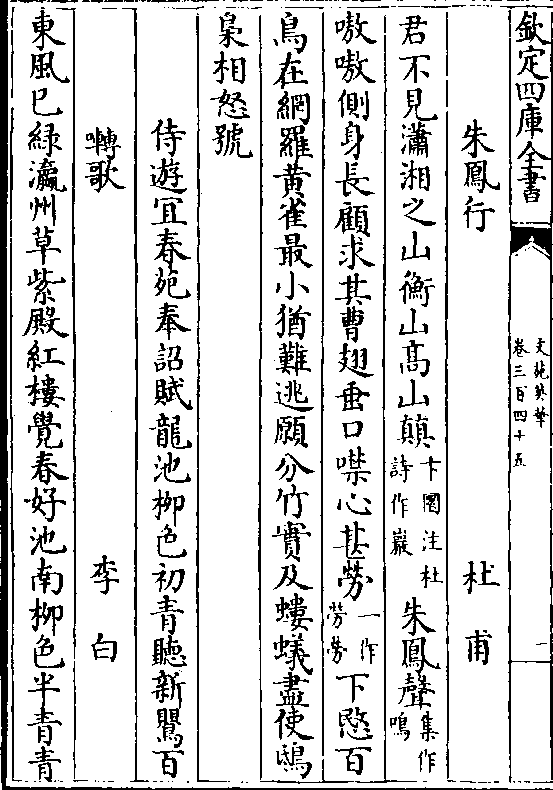 欽定四庫全書
文苑英華
卷三百四十五
二
朱鳳行 杜甫
君不見瀟湘之山衡山髙山顛卞圜注杜詩作巖朱鳳聲集作鳴
嗷嗷側身長顧求其曹翅垂口噤心甚勞一作勞勞下愍百
鳥在網羅黃雀最小猶難逃願分竹實及螻蟻盡使鴟
梟相怒號
侍遊宜春苑奉詔賦龍池柳色初青聽新鸎百
囀歌 李白
東風已緑瀛州草紫殿紅樓覺春好池南柳色半青青